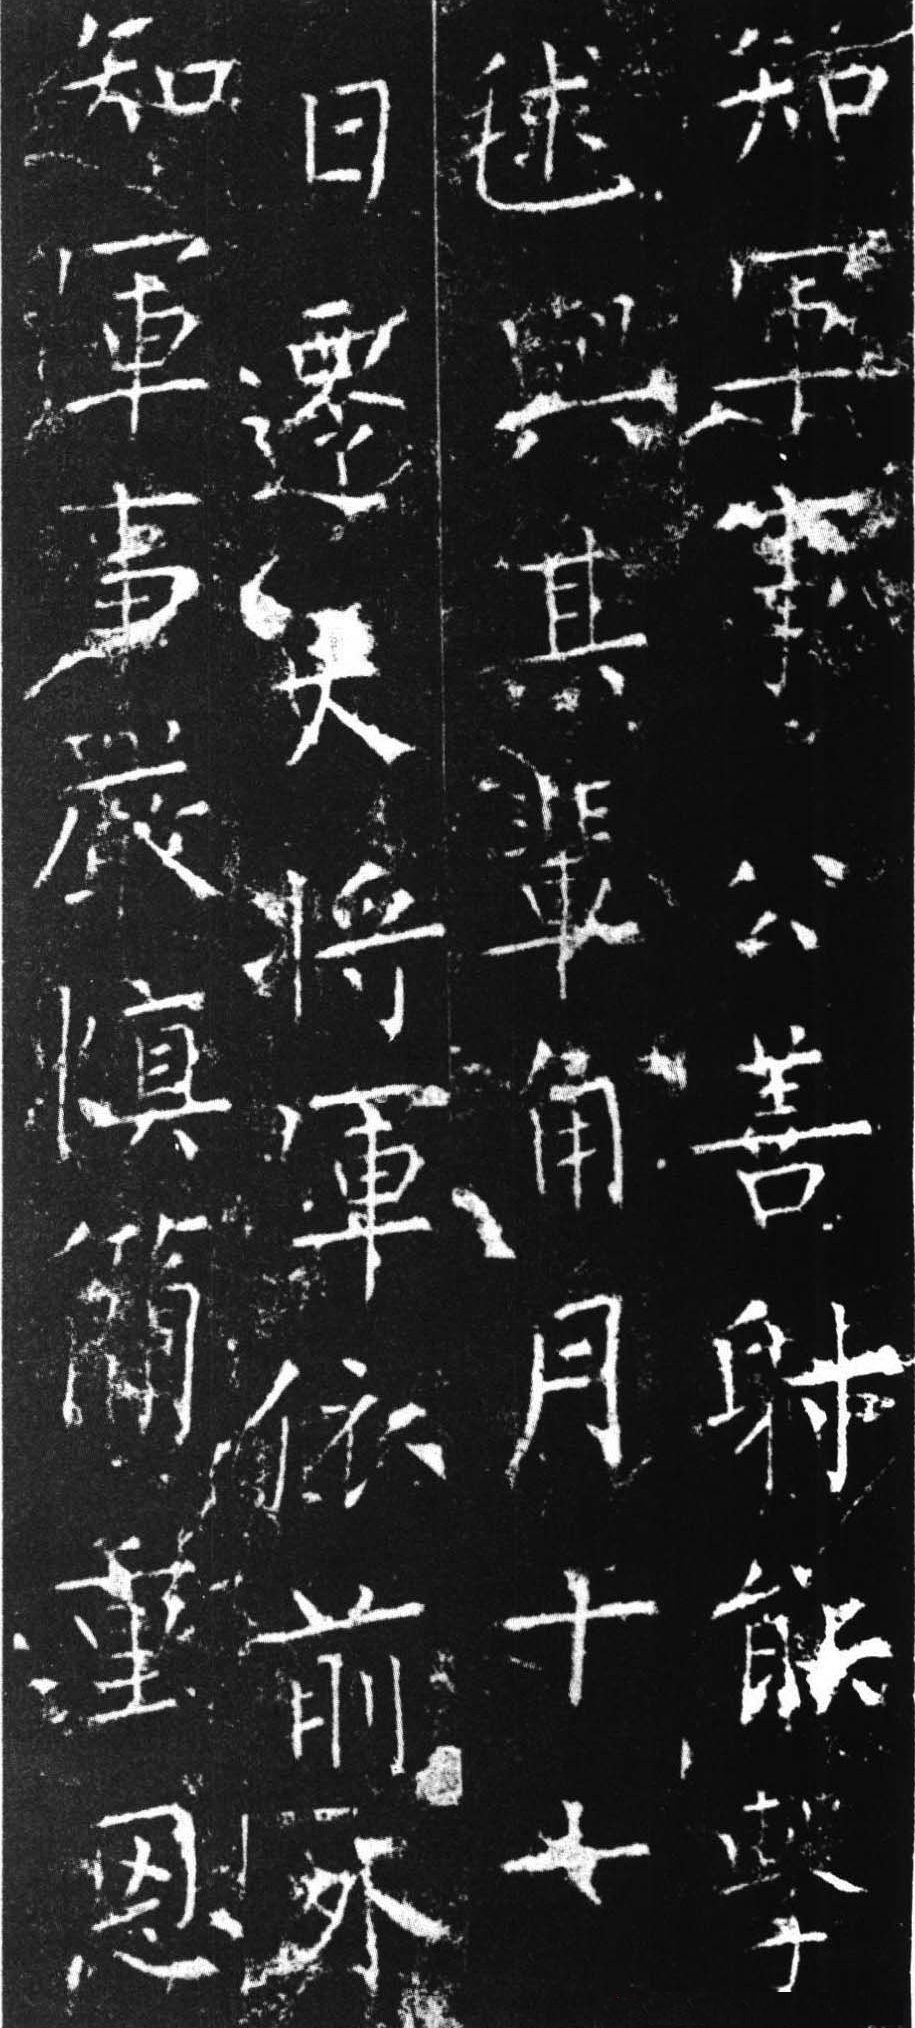 知軍事公善射能擊
毬與其輩角月十七
日遷大將軍依前
知軍事嚴慎簡重恩